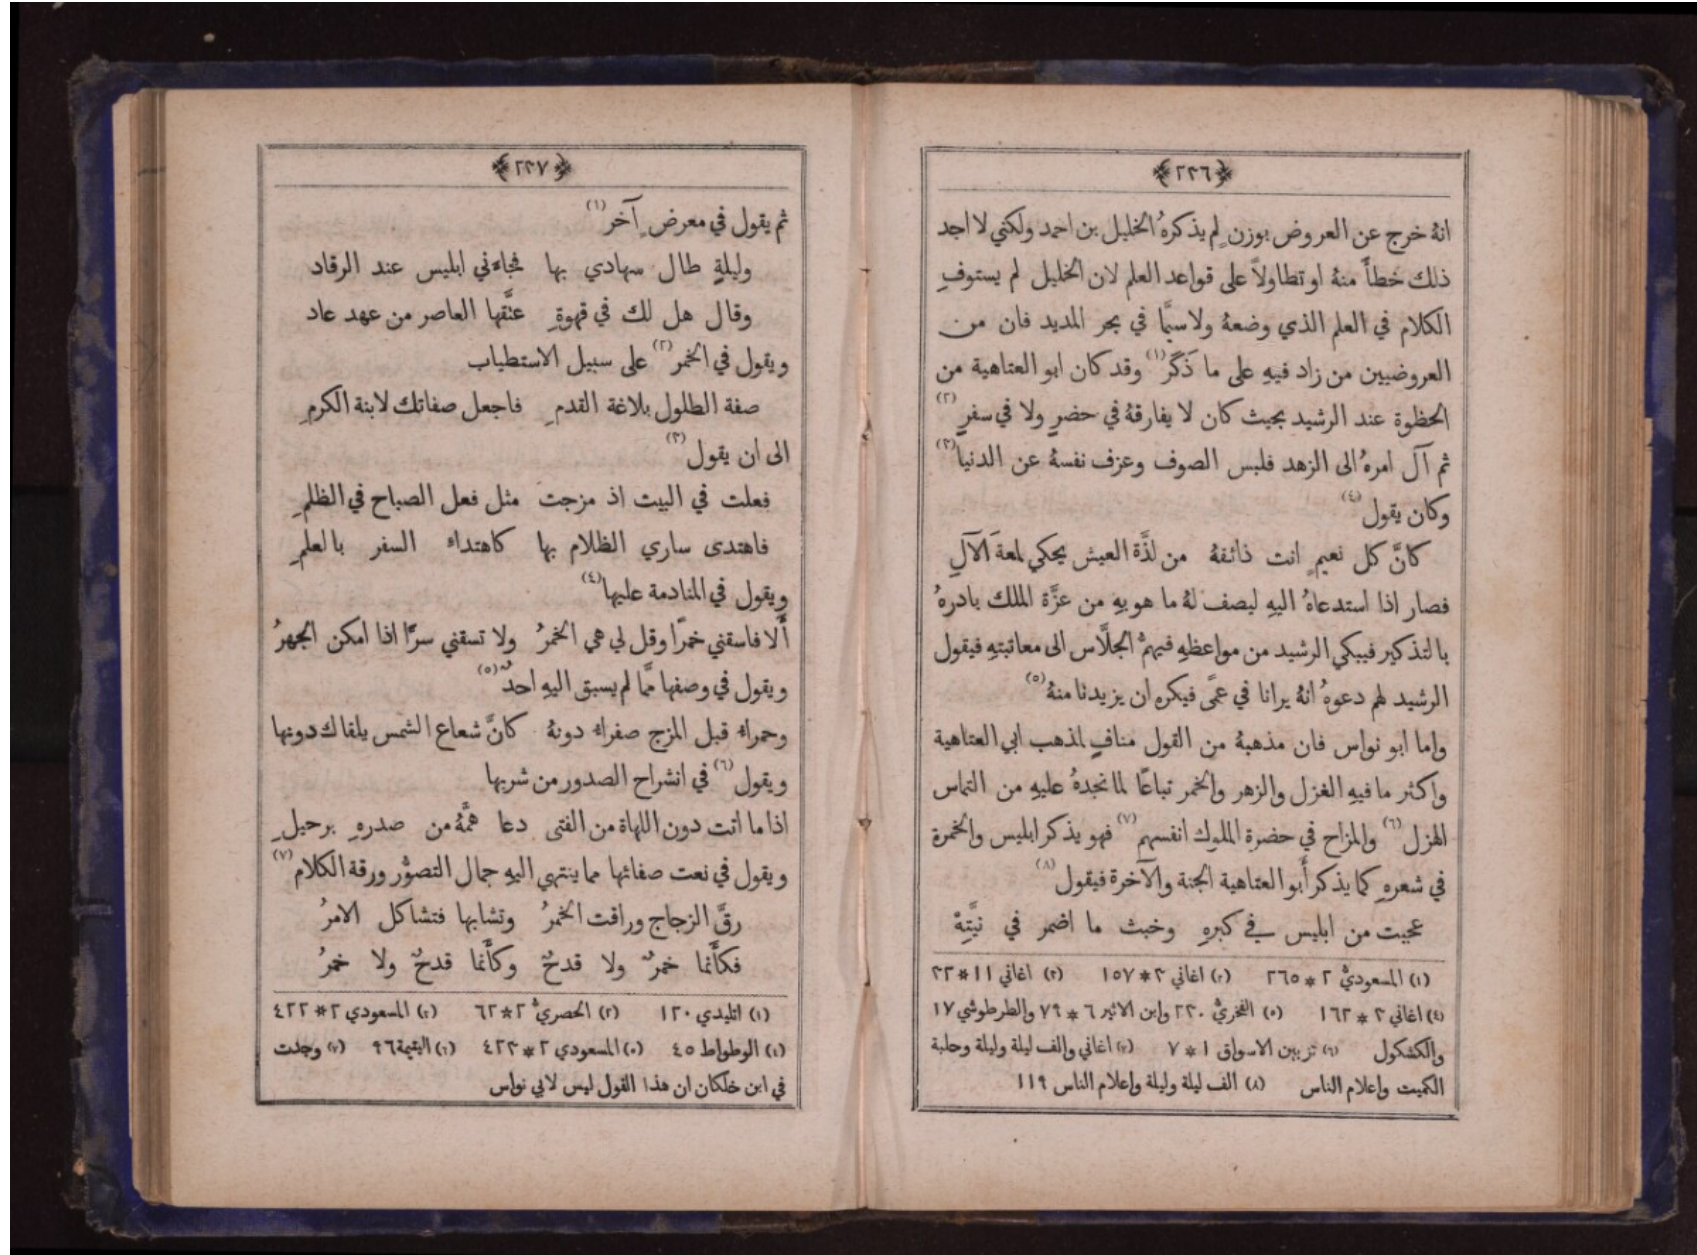 ﴿٢٢٦﴾
انهُ خرج عن العروض بوزنٍ لم يذكرهُ الخليل بن احمد ولكني لا اجد
ذلك خطأً منهُ او تطاولاً على قواعد العلم لان الخليل لم يستوفِ
الكلام في العلم الذي وضعهُ ولاسيَّما في بحر المديد فان من
العروضيين من زاد فيهِ على ما ذَكَر(١) وقد كان ابو العتاهية من
الحظوة عند الرشيد بحيث كان لا يفارقهُ في حضرٍ ولا في سفرٍ(٢)
ثم آلَ امرهُ الى الزهد فلبس الصوف وعزف نفسهُ عن الدنيا(٣)
وكان يقول(٤)
كانَّ كل نعيمٍ انت ذائقهُ من لذَّة العيش يحكي لمعةَ الآلِ
فصار اذا استدعاهُ اليهِ ليصف لهُ ما هو بهِ من عزَّة الملك بادرهُ
بالتذكير فيبكي الرشيد من مواعظهِ فيهمُّ الجلَّاس الى معاتبتهِ فيقول
الرشيد لهم دعوهُ انهُ يرانا في عمًى فيكره ان يزيدنا منهُ(٥)
واما ابو نواس فان مذهبهُ من القول منافٍ لمذهب ابي العتاهية
واكثر ما فيهِ الغزل والزهر والخمر تباعًا لما نجدهُ عليهِ من التماس
الهزل(٦) والمزاح في حضرة الملوك انفسهم(٧) فهو يذكر ابليس والخمرة
في شعرهِ كما يذكر أَبو العتاهية الجنة والآخرة فيقول(٨)
عجبت من ابليس في كبرهِ وخبث ما اضمر في نيَّتِهْ
(١) المسعوديّ ٢ * ٢٦٥ (٢) اغاني ٣ * ١٥٧ (٣) اغاني ١١ * ٢٣
(٤) اغاني ٣ * ١٦٢ (٥) الفخريّ ٢٢٠ وابن الاثير ٦ * ٧٩ والطرطوشي ١٧
والكشكول (٦) تزيين الاسواق ١ * ٧ (٧) اغاني والف ليلة وليلة وحلبة
الكميت واعلام الناس (٨) الف ليلة وليلة واعلام الناس ١١٩
﴿٢٢٧﴾
ثم يقول في معرضٍ آخر(١)
وليلةٍ طال سهادي بها فجاءني ابليس عند الرقاد
وقال هل لك في قهوةٍ عتَّقها العاصر من عهد عاد
ويقول في الخمر(٢) على سبيل الاستطياب
صفة الطلول بلاغة القدمِ فاجعل صفاتك لابنة الكرمِ
الى ان يقول(٣)
فعلت في البيت اذ مزجت مثل فعل الصباح في الظلمِ
فاهتدى ساري الظلام بها كاهتداء السفر بالعلمِ
ويقول في المنادمة عليها(٤)
أَلا فاسقني خمرًا وقل لي هي الخمرُ ولا تسقني سرًّا اذا امكن الجهرُ
ويقول في وصفها ممَّا لم يسبق اليهِ احدٌ(٥)
وحمراء قبل المزج صفراء دونهُ كانَّ شعاع الشمس يلقاك دونها
ويقول(٦) في انشراح الصدور من شربها
اذا ما اتت دون اللهاة من الفتى دعا همَّهُ من صدرهِ برحيلِ
ويقول في نعت صفائها مما ينتهي اليهِ جمال التصوُّر ورقة الكلام(٧)
رقَّ الزجاج وراقت الخمرُ وتشابها فتشاكل الامرُ
فكأَنما خمرٌ ولا قدحٌ وكأَنما قدحٌ ولا خمرُ
(١) اتليدي ١٢٠ (٢) الحصريّ ٢ * ٦٢ (٣) المسعودي ٢ * ٤٢٢
(٤) الوطواط ٤٥ (٥) المسعودي ٢ * ٤٢٣ (٦) اليتيمة ٩٦ (٧) وجدت
في ابن خلكان ان هذا القول ليس لابي نواس